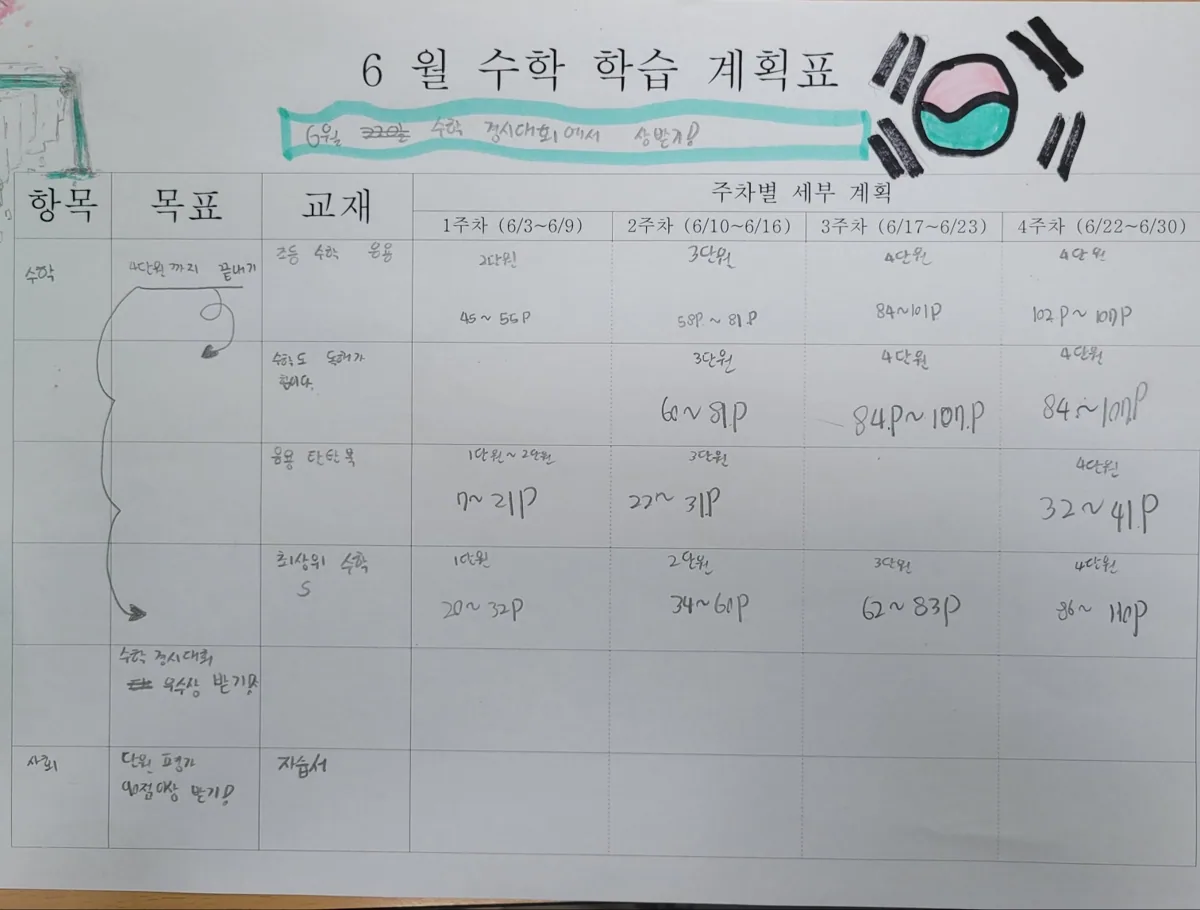 6 월 수학 학습 계획표
6월 수학 경시대회에서 상받기!
항목 목표 교재 주차별 세부 계획
1주차 (6/3~6/9) 2주차 (6/10~6/16) 3주차 (6/17~6/23) 4주차 (6/22~6/30)
수학 4단원까지 끝내기 초등 수학 응용 2단원 3단원 4단원 4단원
45~55P 58P~81P 84~101P 102P~107P
수학도 독해가 3단원 4단원 4단원
힘이다. 60~81.P 84.P~107.P 84~107P
응용 탄탄북 1단원~2단원 3단원 4단원
7~21P 22~31P 32~41.P
최상위 수학 1단원 2단원 3단원 4단원
S 20~32P 34~60P 62~83P 86~110P
수학 경시대회
우수상 받기!
사회 단원 평가 자습서
90점이상 받기!